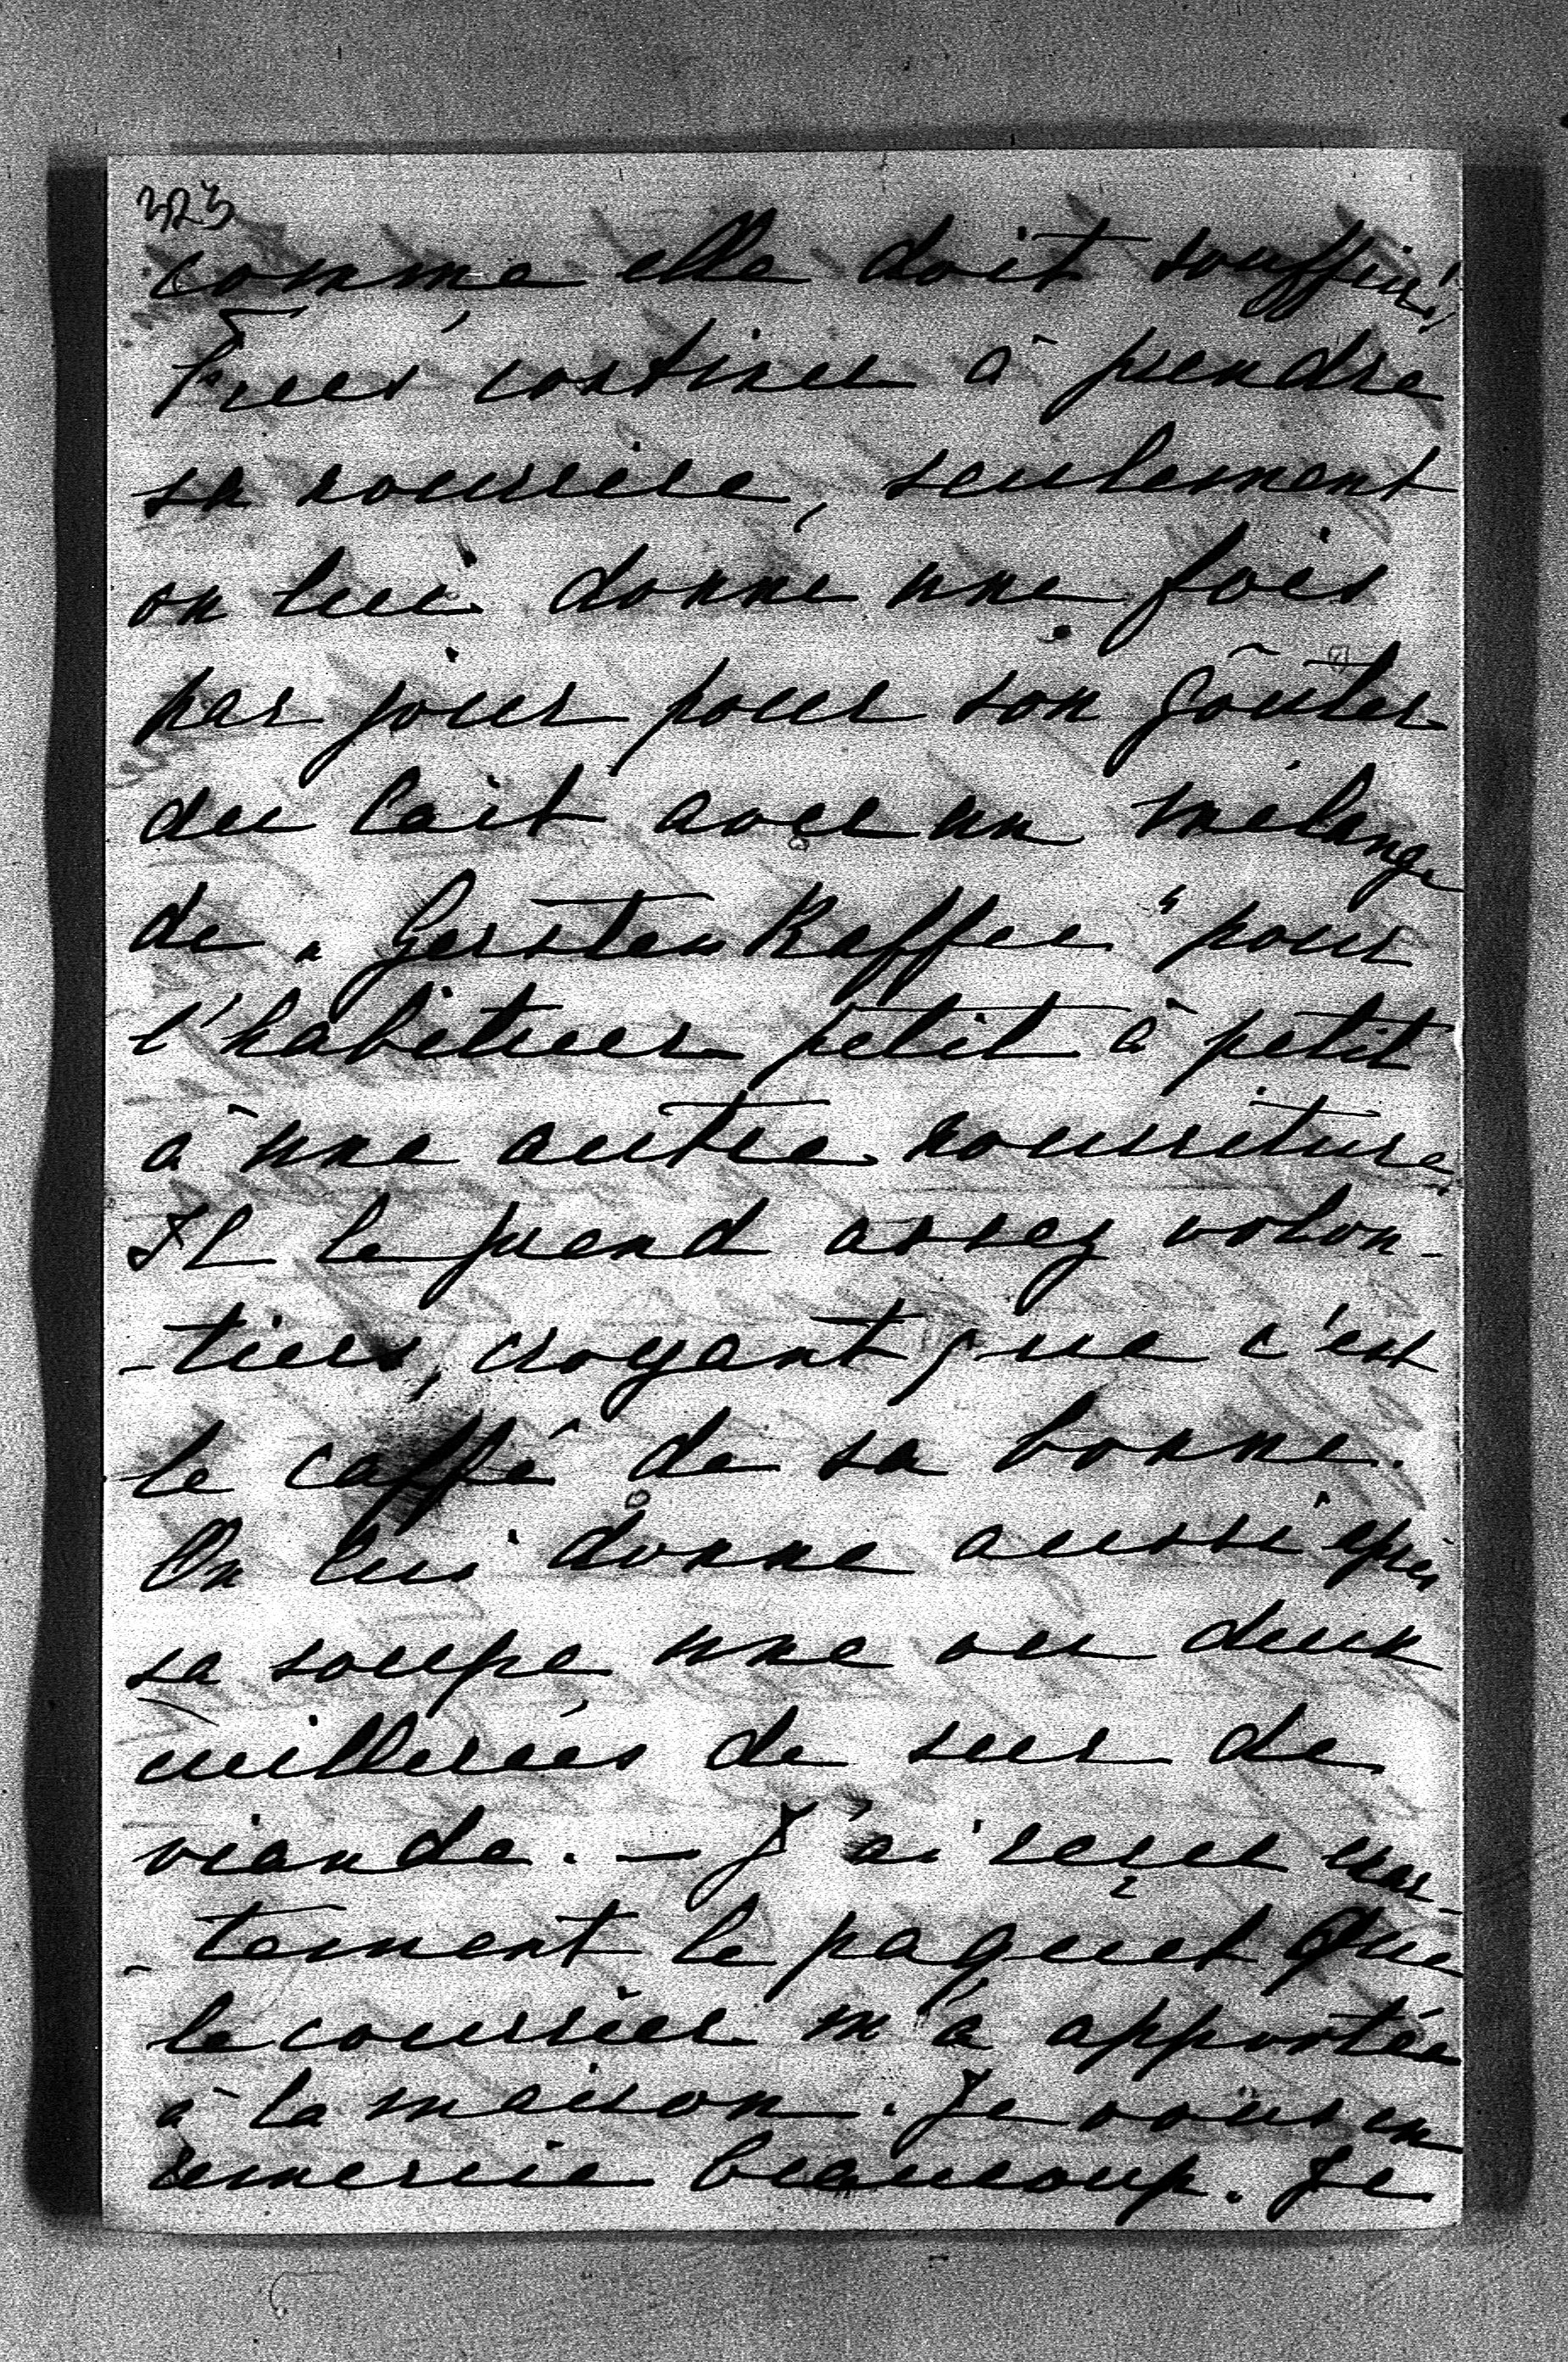 323
comme elle doit souffrir!
continue à prendre
sa nourrice, seulement
on lui donne une fois
par jour pour son goûter
du lait avec un mélange
de „Gersten Kaffee“ pour
l'habituer petit à petit
à une autre nourriture.
Il le prend assez volon-
-tiers, croyant que c'est
le caffé de sa bonne.
On lui donne aussi après
sa soupe une ou deux
cuillerées de sur de
viande. — J'ai reçu exac-
-tement le paquet que
le courrier m'a apportée
à la maison. Je vous en
remercie beaucoup. Je